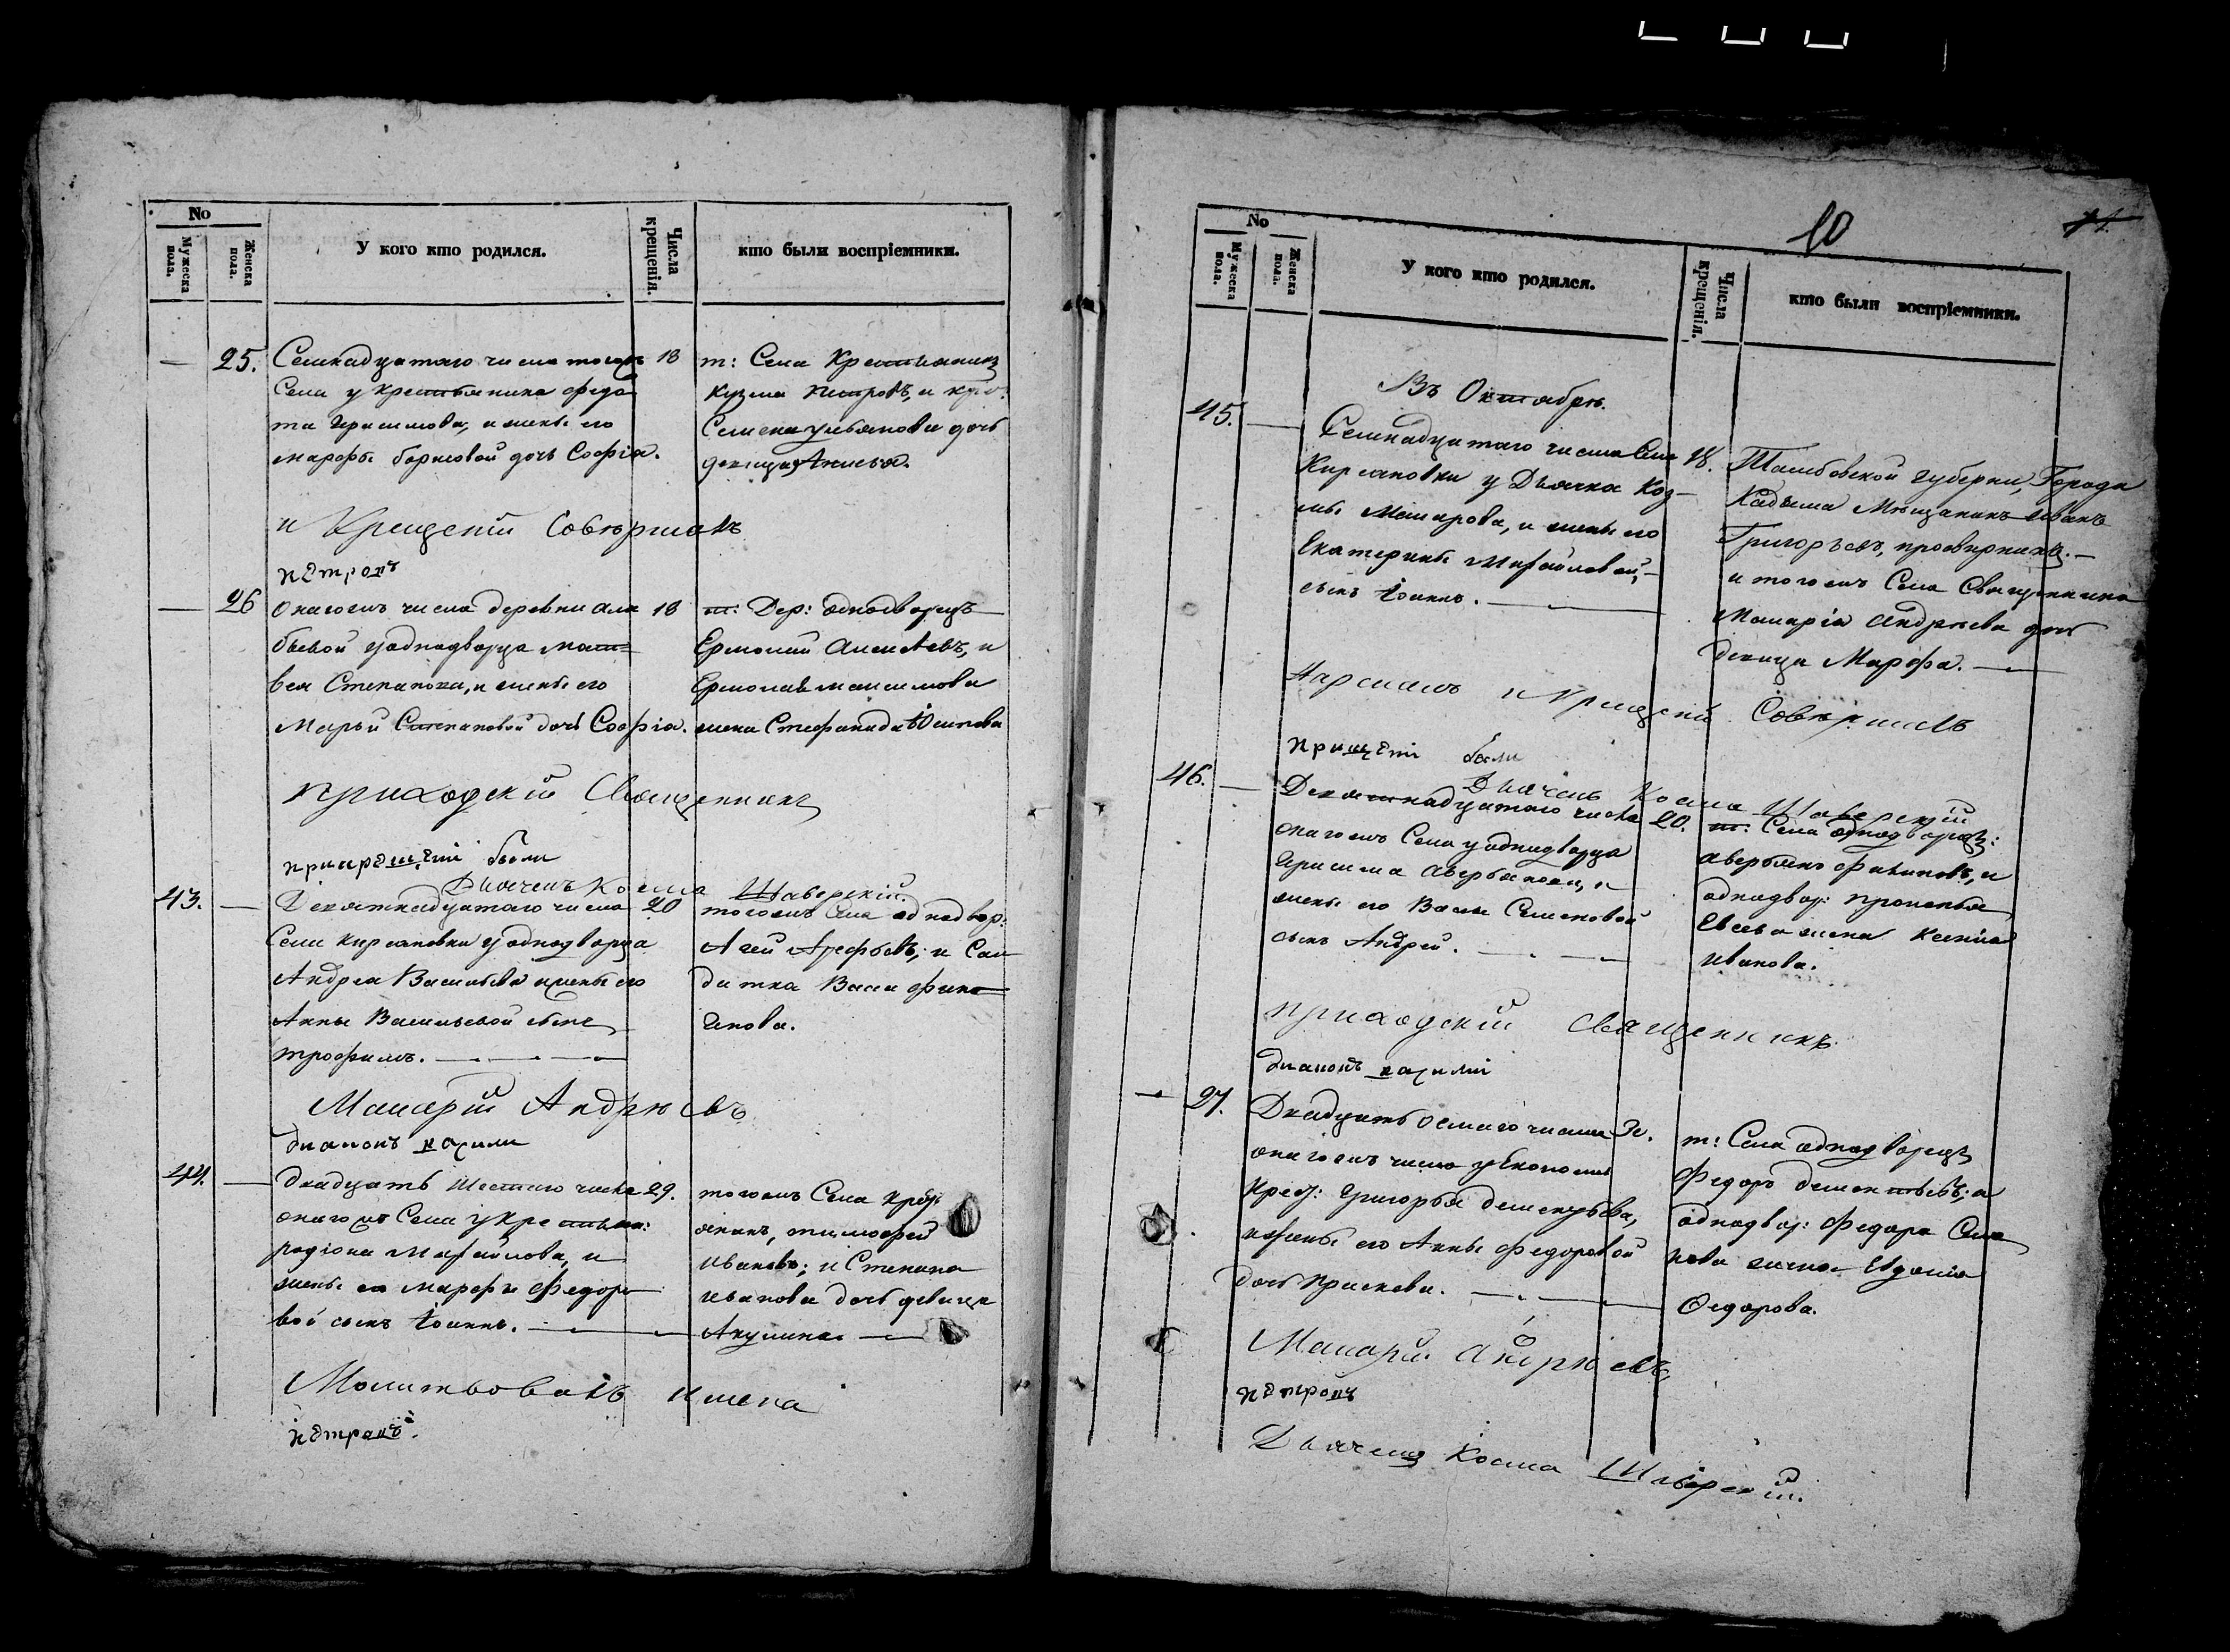 No
Мужеска пола.
Женска пола.
У кого кто родился.
Числа крещенія.
кто были воспріемники.
— 25. Семнадцатаго числа тогожъ 18
Села у крестьянина Федо
та Герасимова, и жены его
Марфы Борисовой дочь Софія.
т: Села Крестьянинъ
Кузма Петровъ, и кре:
Семена Ульянова дочь
девица Анисья.
и Крещеніи Совершалъ
Петровъ
— 26 Онагожъ числа деревни
у однодворца Мат
вея Степанова, и жены его
Марьи Степановой дочь Софія.
18
т: Дер: однодворецъ
Ермолай Алексѣевъ, и
жена Стефанида Осипова
Приходскій Священникъ
были
Дьячекъ Косма Шаверскій.
43. — Девятнадцатаго числа 20
Села Кирсановки у однодворца
Андрея Васильева и жены его
Анны Васильевой сынъ
Трофимъ.
тогожъ Села однодвор:
Агей Арефьевъ, и Сол
датка Васса Фина
генова.
Макарій Андреевъ
диаконъ
44. — Двадцать шестаго числа 29.
онагожъ Села у крестьян:
Родіона Михайлова, и
жены его Марфы Федоро
вой сынъ Іоаннъ.
тогожъ Села крест
янинъ, Тимофей
Ивановъ; и Степана
Иванова дочь девица
Акулина.
Молитвовалъ Имена
Петровъ.
10
No
Мужеска пола.
Женска пола.
У кого кто родился.
Числа крещенія.
кто были воспріемники.
Въ Октябрѣ.
45. — Семнадцатаго числа Села 18.
Кирсановки у Дьячка Коз
мы Макарова, и жены его
Екатерины Михайловой,
сынъ Іоаннъ.
Тамбовской губерни, Города
Кадома Мѣщанинъ Иванъ
Григорьевъ,
и тогожъ Села Священника
Макарія Андреева дочь
девица Марфа.
и Крещеніи Совершалъ
были
Дьячекъ Косма Шаверскій
46. — Девятнадцатаго числа 20.
онагожъ Села у однодворца
Герасима Аверьянова, и
жены его Вассы Семеновой
сынъ Андрей.
т: Села однодворец:
Аверьянъ Филиповъ, и
однодвор: Прокопья
Евсева жена Ксенія
Иванова.
Приходскій Священникъ
диаконъ
— 27. Двадцать осмаго числа 30.
онагожъ числа у Економич
Крест: Григорья Дементьева,
и жены его Анны Федоровой
дочь Прасковья.
т: Села однодворецъ
Федоръ Дементьевъ; и
однодвор: Федора
жена Евдокія
Федорова.
Макарій Андреевъ
Петровъ
Дьячекъ Косма Шаверскій.